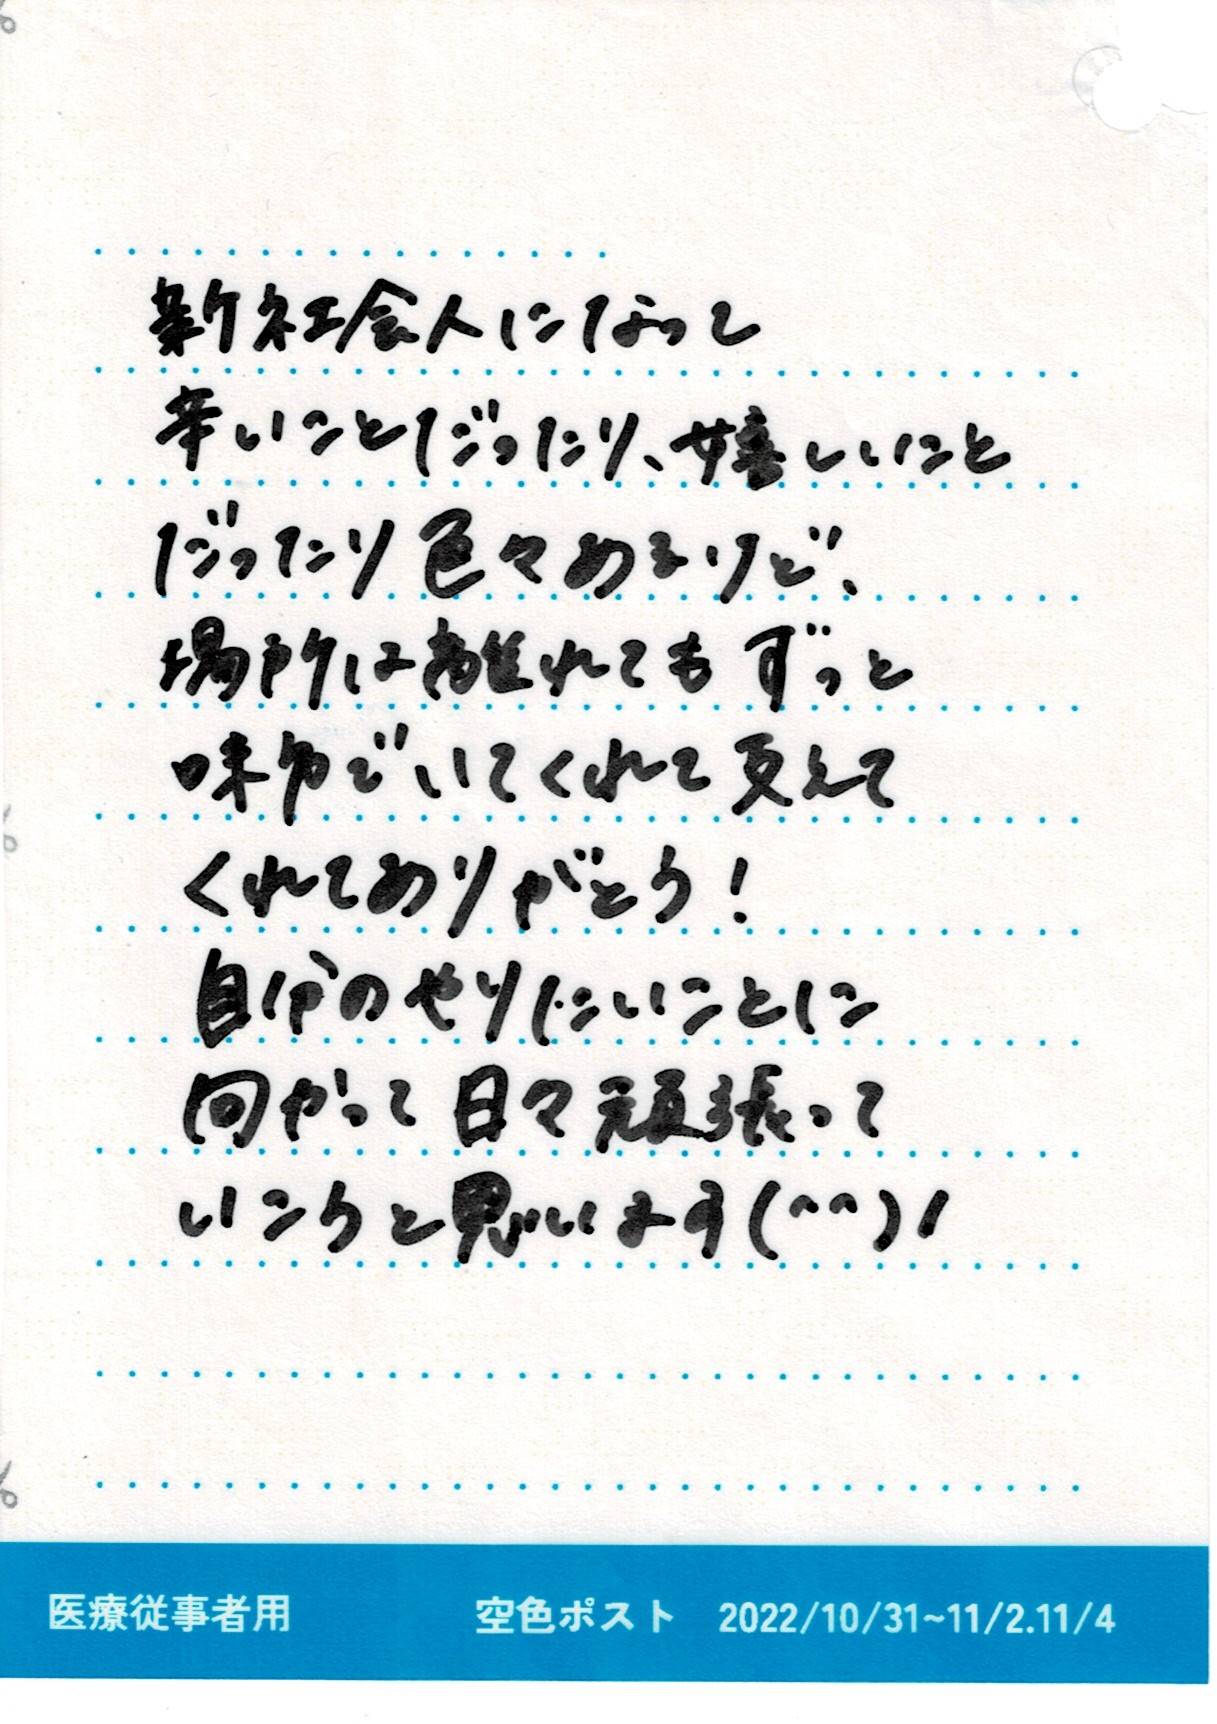 新社会人になって
辛いことだったり、嬉しいこと
だったり色々あるけど、
場所は離れてもずっと
味方でいてくれて支えて
くれてありがとう！
自分のやりたいことに
向かって日々頑張って
いこうと思います(^^)!
医療従事者用 空色ポスト 2022/10/31~11/2.11/4